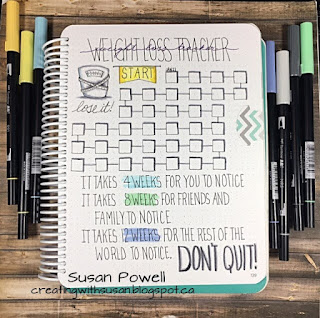 WEIGHT LOSS TRACKER
START
lose it!
IT TAKES 4 WEEKS FOR YOU TO NOTICE
IT TAKES 8 WEEKS FOR FRIENDS AND
FAMILY TO NOTICE
IT TAKES 12 WEEKS FOR THE REST OF THE
WORLD TO NOTICE.
DON'T QUIT!
Susan Powell
creatingwithsusan.blogspot.ca